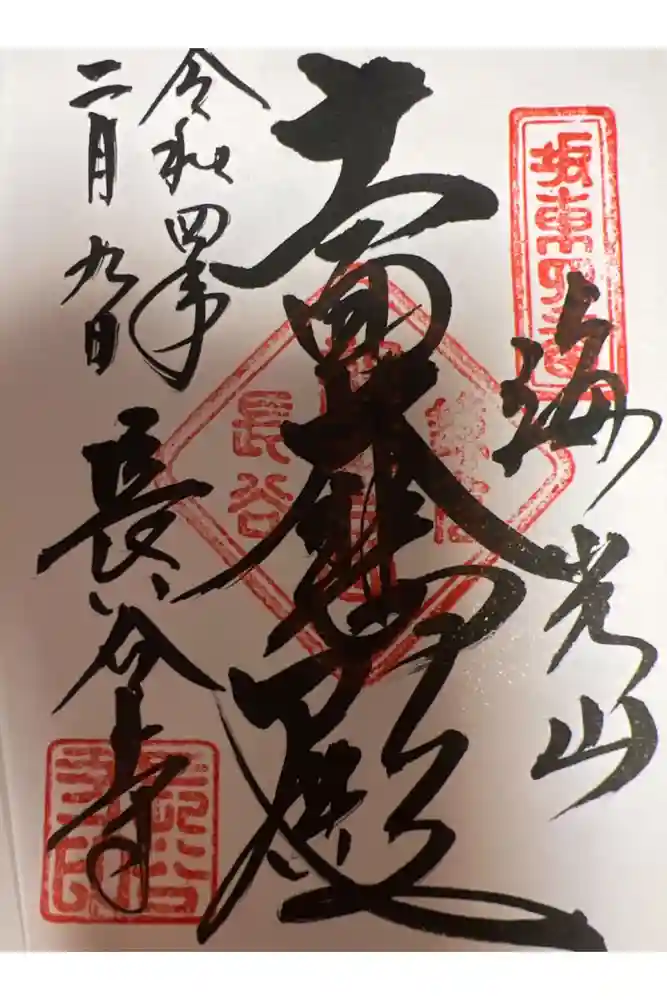 坂東四番
海光山
十一面大悲殿
長谷
令和四年
二月九日
長谷寺